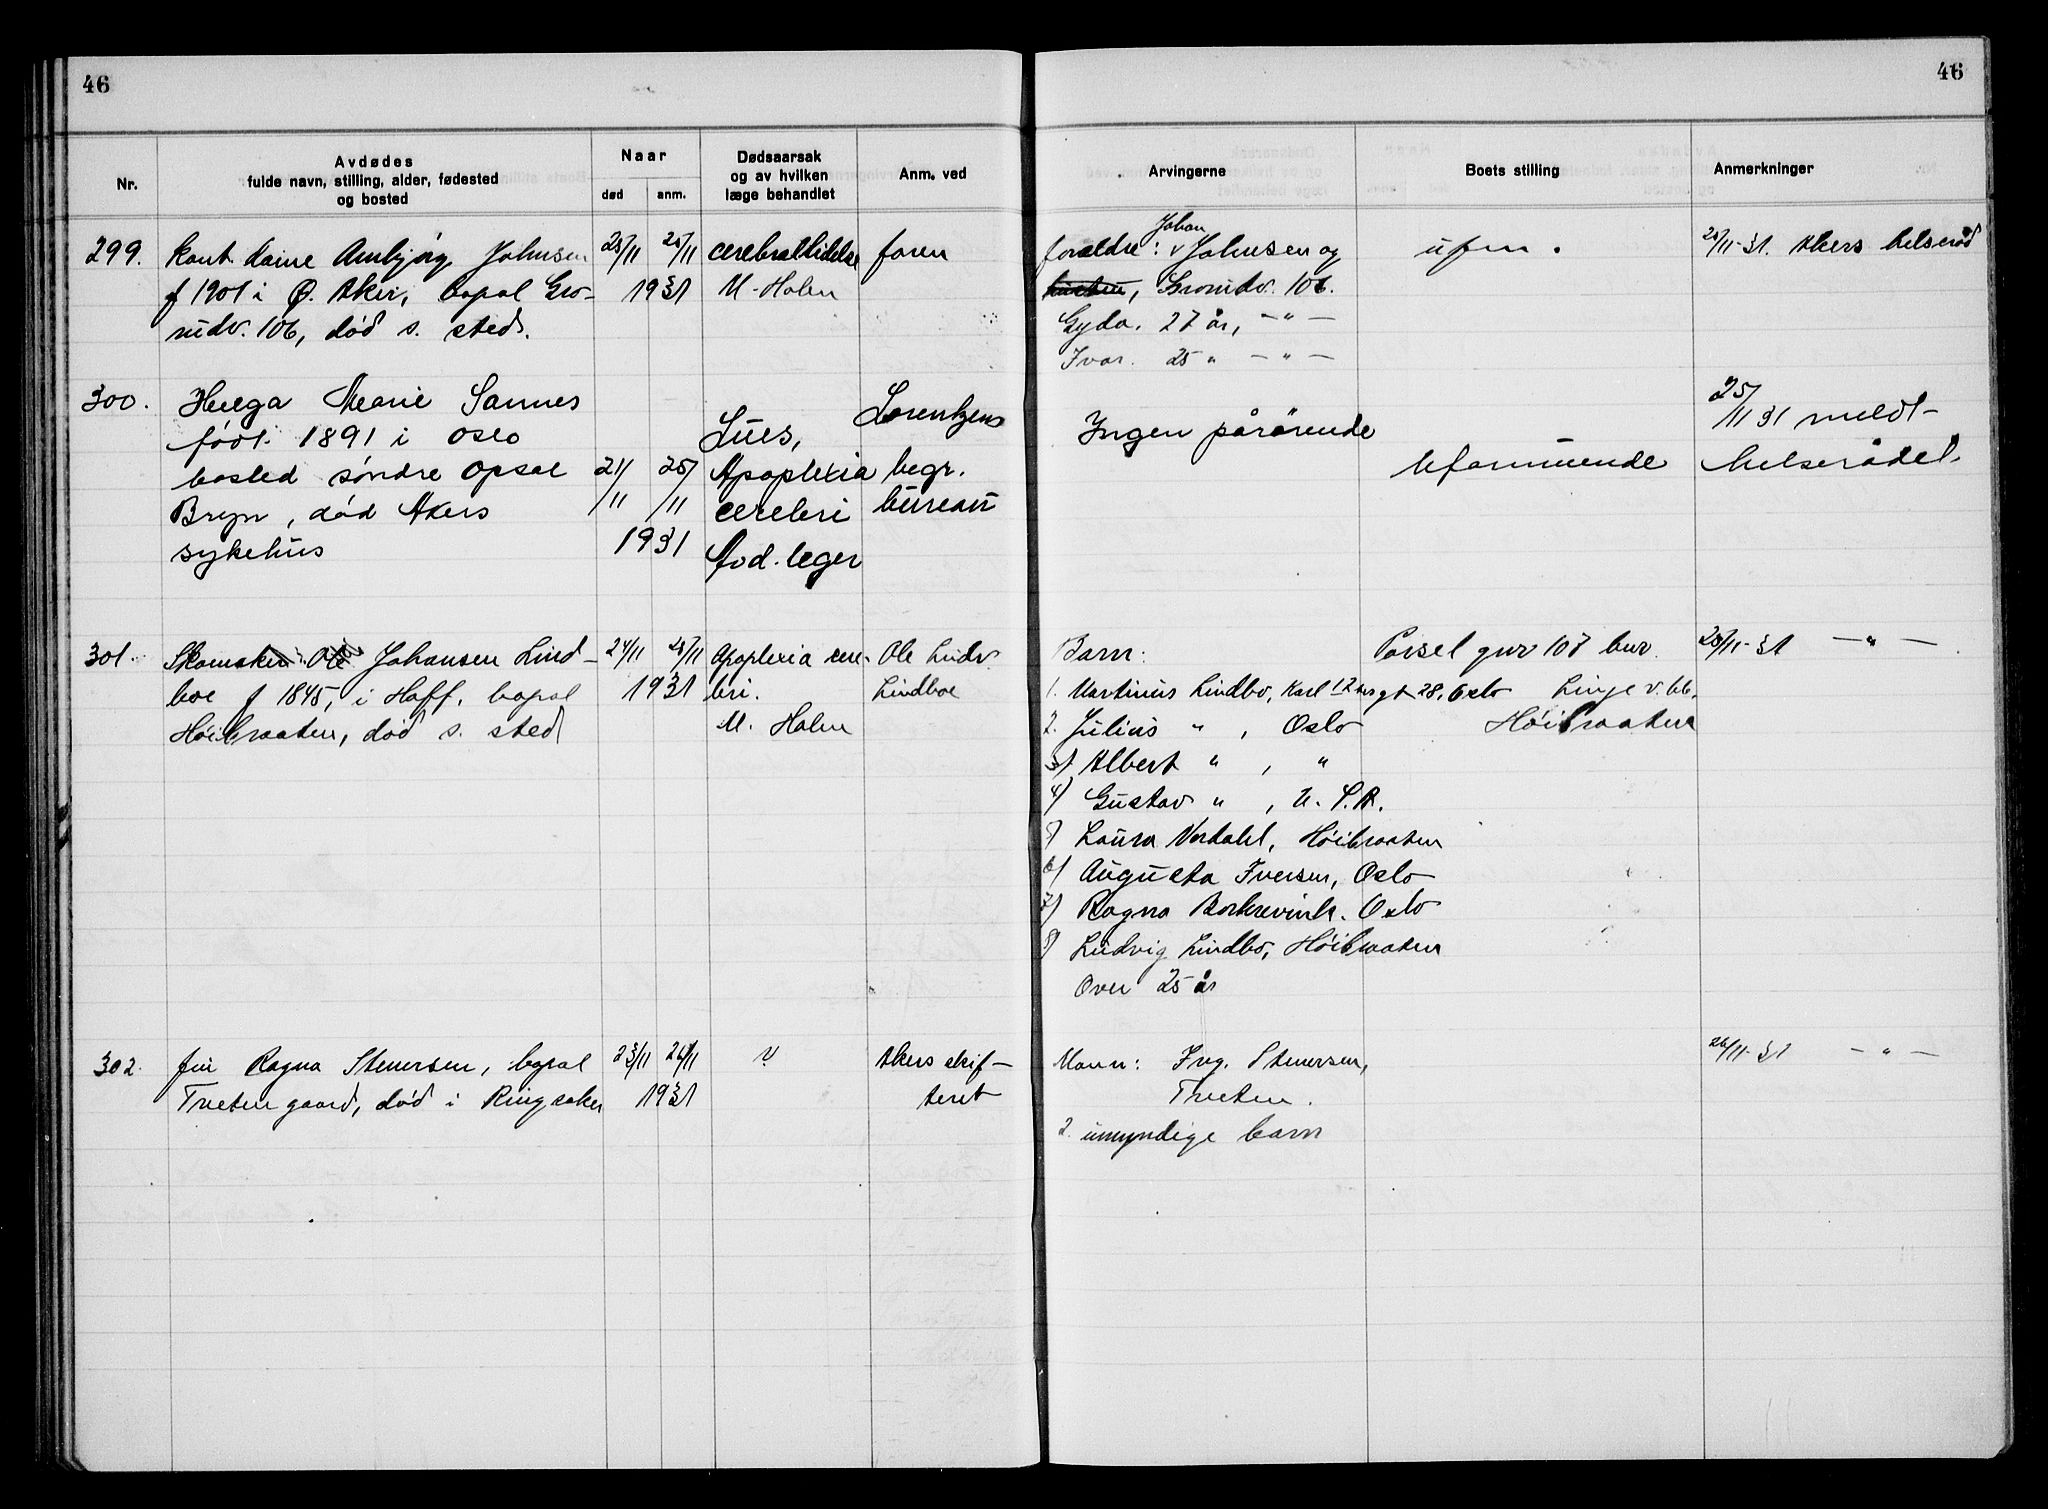 46
46
Nr.
Avdødes
fulde navn, stilling, alder, fødested
og bosted
Naar
død
anm.
Dødsaarsak
og av hvilken
læge behandlet
Anm. ved
Arvingerne
Boets stilling
Anmerkninger
299.
Kont. dame Ambjörg Johnsen
f 1901 i Ø. Aker, bopal Gro-
rudv. 106, död s. sted.
25/11 25/11
1931
cerebrallidelse
M. Holm
faren
Johan
foreldre: v Johnsen og
Grorudv. 106.
Gyda. 27 år, - " -
Ivar. 25 " - " -
ufm.
25/11-31. Akers helseråd
300.
Helga Marie Sannes
födt 1891 i Oslo
bosted söndre Opsal
Bryn, död Akers
sykehus
21/11 25/11
1931
Lues,
Apoplexia
cerebri
Avd. leger
Lorentzens
begr.
bureau
Ingen pårörende
Uformuende
25/11 31 meldt
helserådet.
301.
Skomaker Ole Johansen Lind-
boe f 1845, i Hoff, bopal
Höibraaten, död s. sted
24/11 25/11
1931
Apoplexia cere-
bri.
M. Holm
Ole Ludv
Lindboe
Barn:
1. Martinus Lindbo, Karl 12 tes gt 28, Oslo
2. Julius " , Oslo
3) Albert " , "
4) Gustav " , U.S.A.
5) Laura Nordahl, Höibraaten
6) Augusta Iversen, Oslo
7) Ragna Borkrevink. Oslo
8) Ludvig Lindbo, Höibraaten
Over 25 år
Parsel gnr 107 bnr.
Linje v. 66.
Höibraaten
25/11-31 - " -
302.
fru Ragna Stenersen, bopal
Tveten gaard, död i Ringsaker
23/11 26/11
1931
?
Akers skif-
teret
Mann: Ing. Stenersen,
Tveten.
2. umyndige barn
26/11-31 - " -